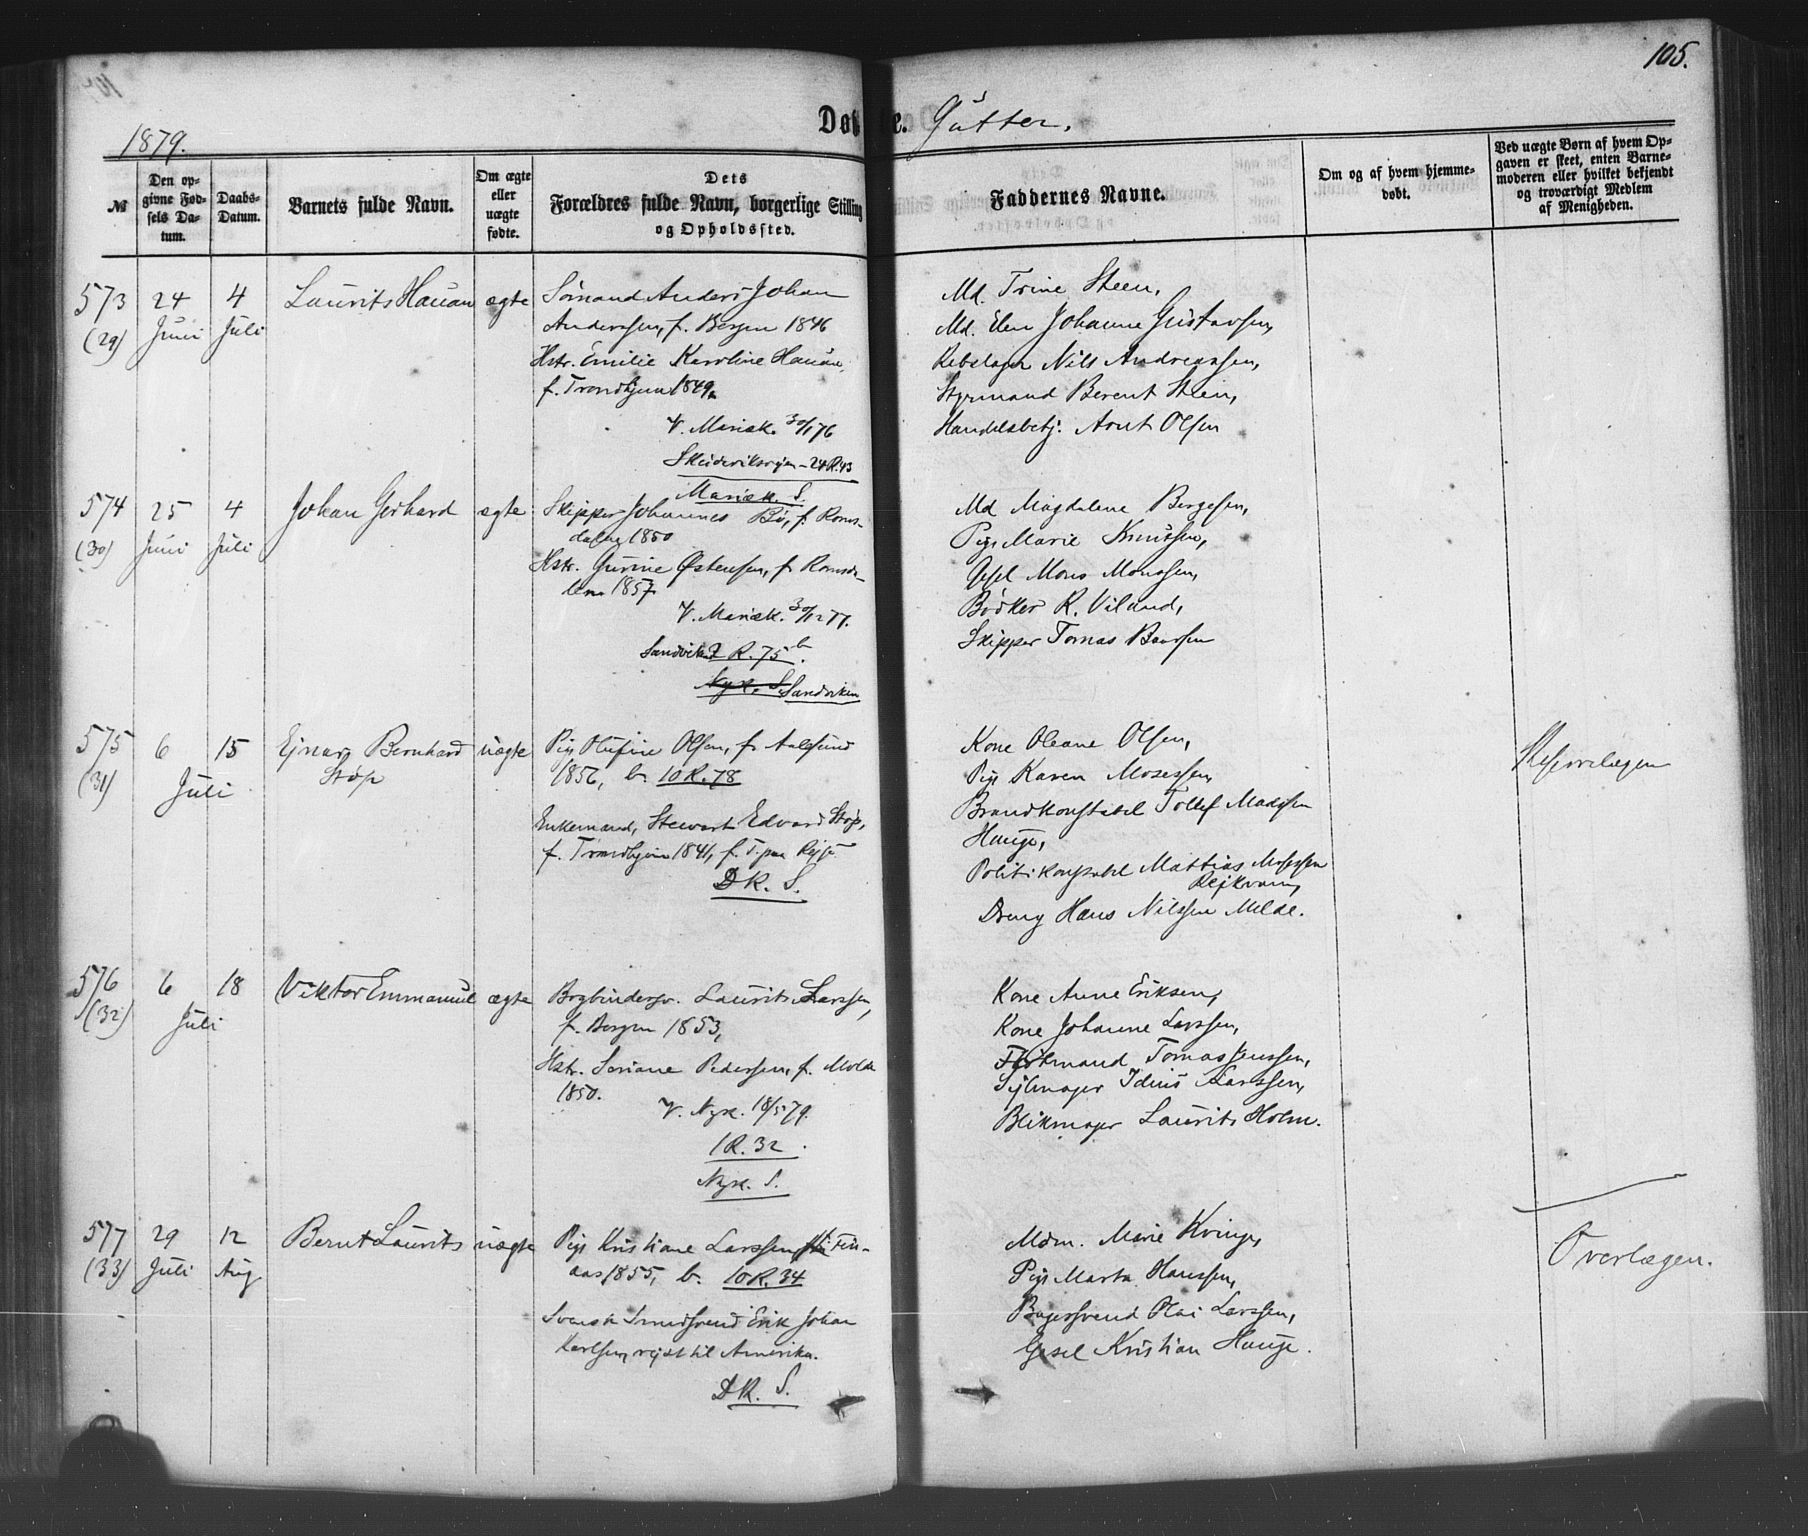 105.
1879.
Døbte. Gutter.
№
Den opgivne Fødsels Datum.
Daabs-Datum.
Barnets fulde Navn.
Om ægte eller uægte fødte.
Dets Forældres fulde Navn, borgerlige Stilling og Opholdssted.
Faddernes Navne.
Om og af hvem hjemmedøbt.
Ved uægte Børn af hvem Opgaven er skeet, enten Barnemoderen eller hvilket bekjendt og troværdigt Medlem af Menigheden.
573 (29)
24 Juni
4 Juli
Laurits Hauan
ægte
Sømand Anders Johan
Anderssen, f. Bergen 1846
Hstr. Emilie Karoline Hauan,
f. Trondhjem 1849,
V. Mariæk. 30/1 76
24 R. 43
Mariæk. S.
Md. Trine Steen,
Md. Elen Johanne Gustavsen,
Rebslager Nils Andreassen,
Styrmand Berent Steen,
Handelsbetj. Arnt Olsen
574 (30)
25 Juni
4 Juli
Johan Gerhard
ægte
Skipper Johannes Bø, f. Roms-
dalen 1850
Hstr. Gurine Østensen, f. Romsda-
len 1857
V. Mariæk. 30/12 77.
Sandvik. 2 R. 75 b.
Nyk. S. Sandviken
Md Magdalene Børgesen,
Pige Marie Knutsen,
Gesel Mons Monssen,
Bødker R. Viland,
Skipper Tomas Baarsen
575 (31)
6 Juli
15
Ejnar Bernhard
Støp
uægte
Pige Olufine Olsen, f. Aalesund
1856, b. 10 R. 78
Enkemand, Stewart Edvard Støp,
f. Trondhjem 1841, f. T. paa Rejse
DK. S.
Kone Oleane Olsen,
Pige Karen Mosessen,
Brandkonstabel Tollef Madssen
Hauge,
Politikonstabel Mattias Mosessen
Rejkvam,
Dreng Hans Nilssen Melde.
576 (32)
6 Juli
18
Viktor Emmanuel
ægte
Bogbindersv. Laurits Larssen,
f. Bergen 1853,
Hstr. Seriane Pedersen, f. Molde
1850.
V. Nyk. 18/5 79.
1 R. 32
Nyk. S.
Kone Anne Eriksen,
Kone Johanne Larssen,
Tomas Jenssen,
Sejlmager Larssen,
Blikmager Laurits Holm.
577 (33)
29 Juli
12 Aug
Bernt Laurits
uægte
Pige Kristiane Larssen, f. i Fin-
aas 1855, b. 10 R. 34
Svensk Smedsvend Erik Johan
Karlsen, rejst til Amerika.
DK. S.
Mdm. Marie Kvinge,
Pige Marta Hanssen,
Bagersvend Olai Larssen,
Gesel Kristian Hauge.
Overlægen.